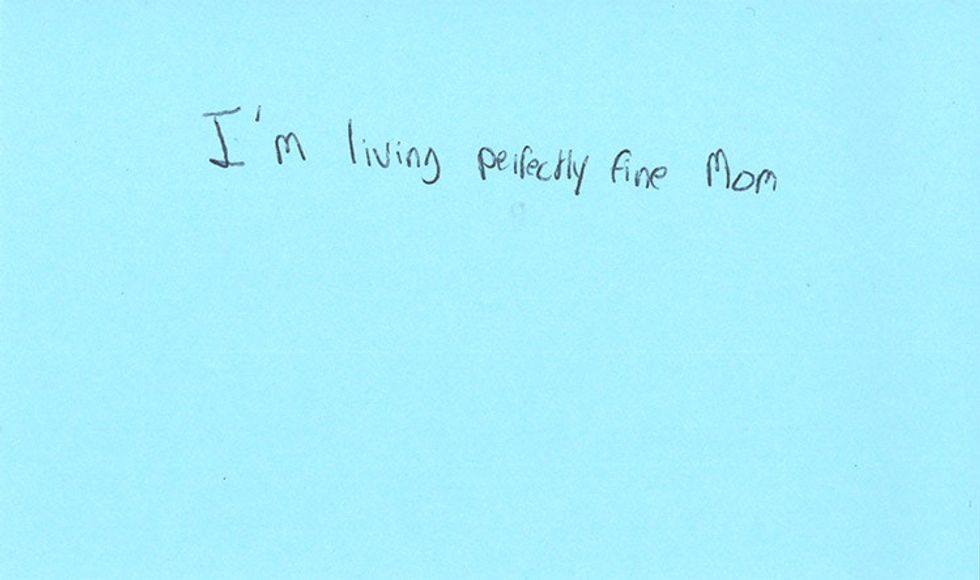 I'm living perfectly fine Mom